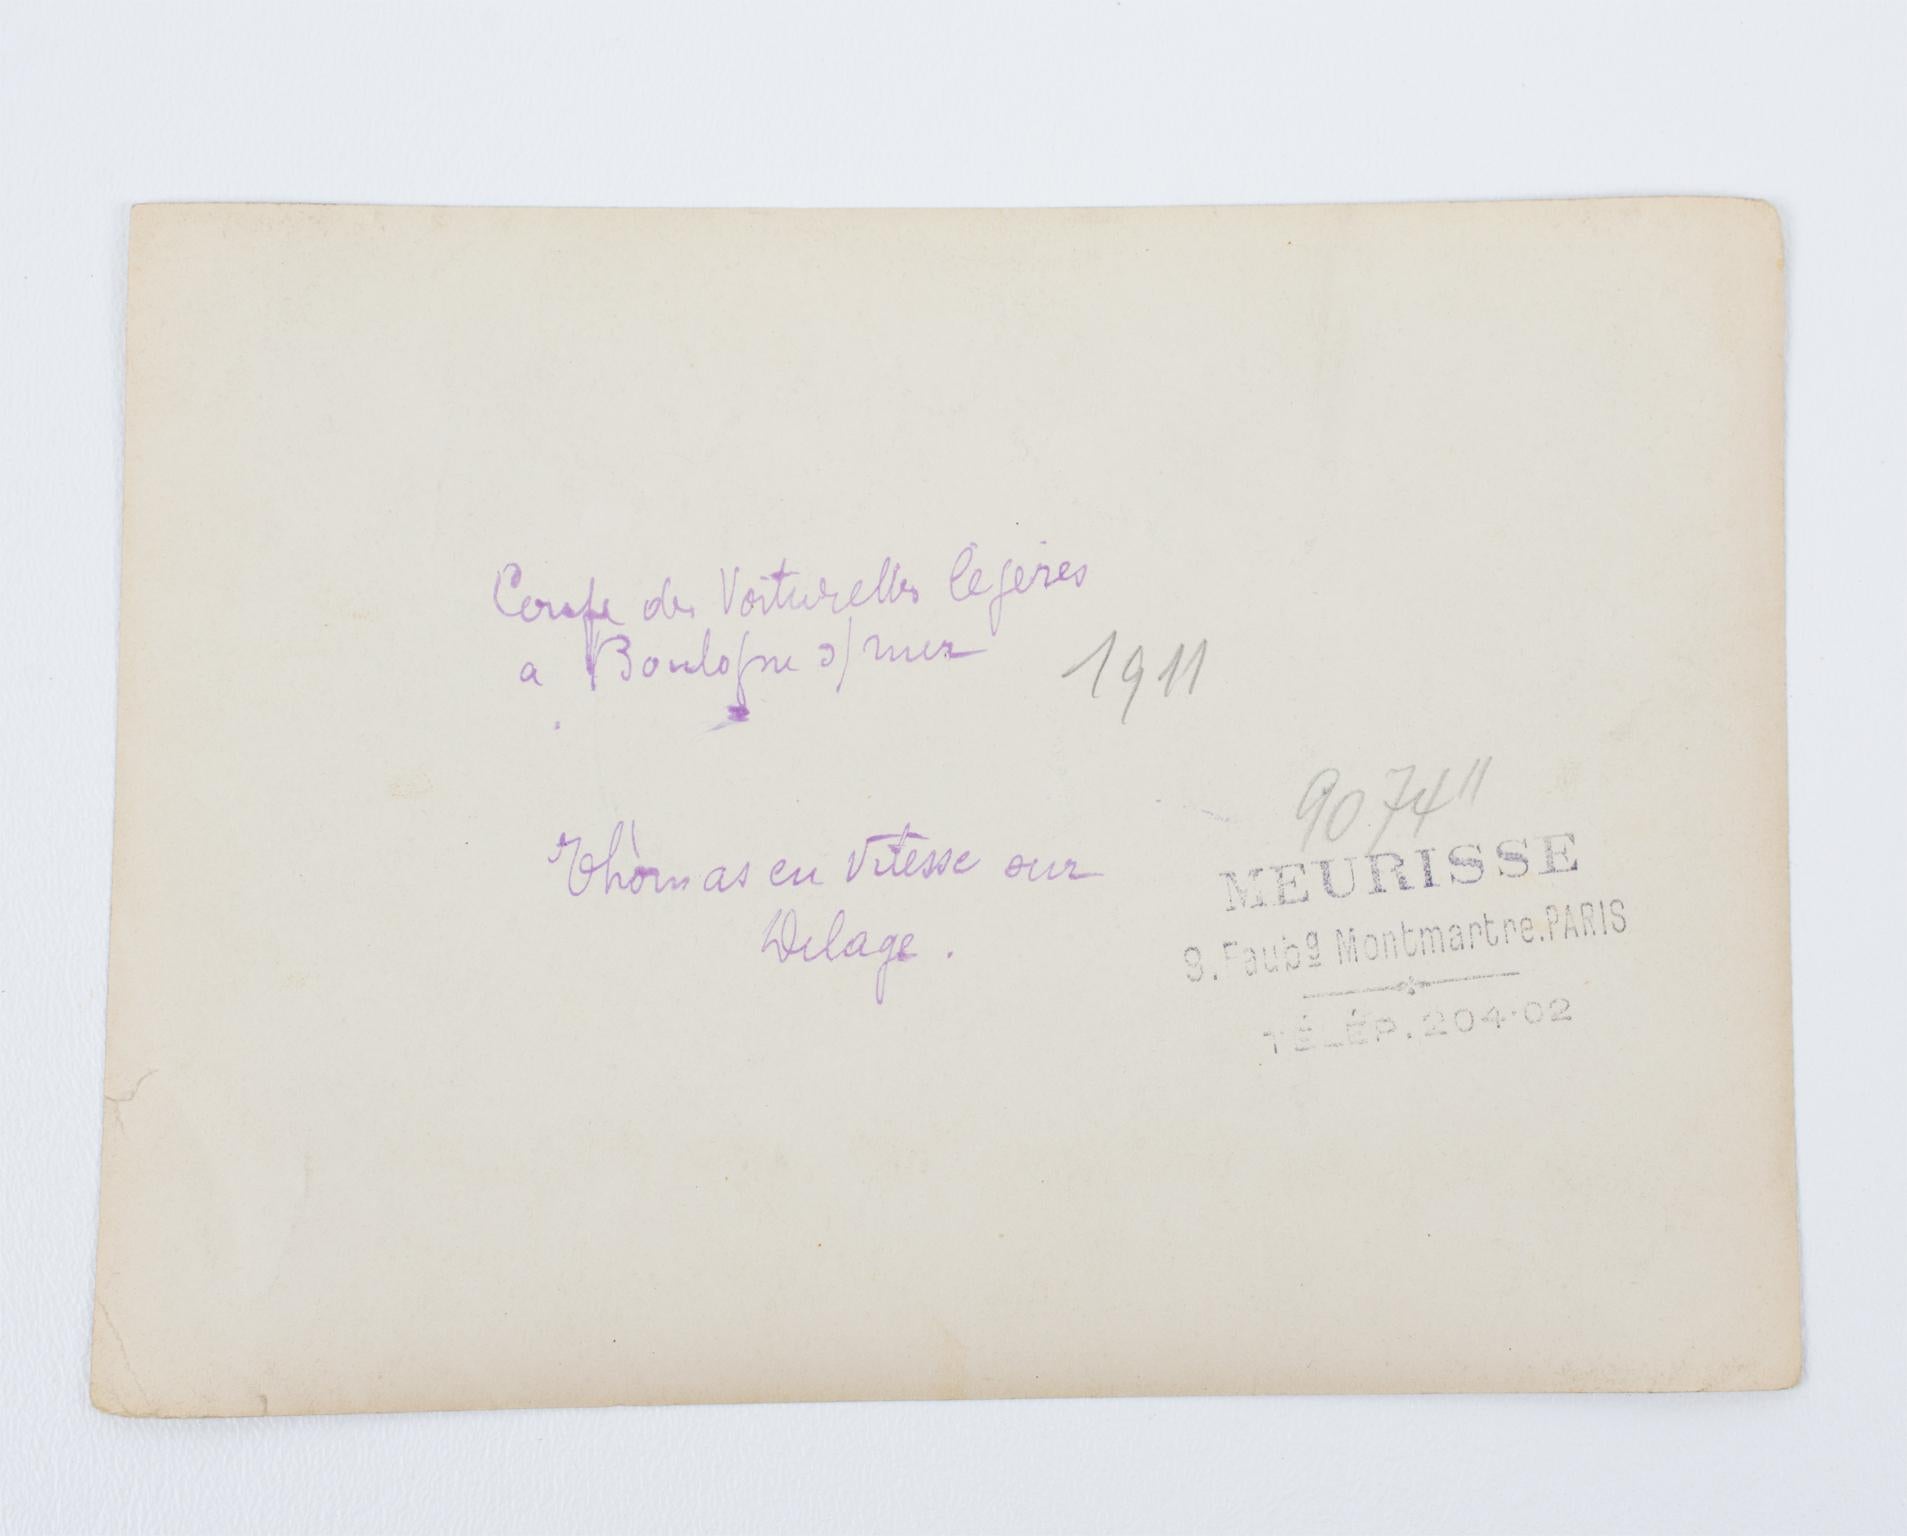 Coupe des Voiturelles légères
a Boulogne s/mer
1911
Thomas en vitesse sur
Delage.
9074"
MEURISSE
9. Faubg Montmartre. PARIS
TÉLÉP. 204·02